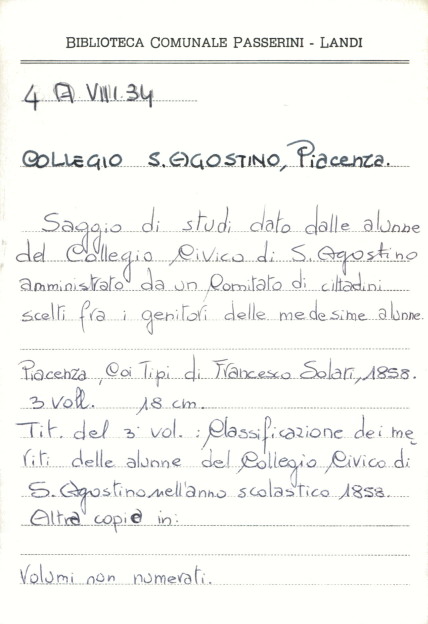 BIBLIOTECA COMUNALE PASSERINI - LANDI
4 A VIII.34
COLLEGIO S. AGOSTINO, Piacenza.
Saggio di studi dato dalle alunne
del Collegio Civico di S. Agostino
amministrato da un Comitato di cittadini
scelti fra i genitori delle medesime alunne.
Piacenza, Coi Tipi di Francesco Solari, 1858.
3 voll. 18 cm.
Tit. del 3° vol. : Classificazione dei me
riti delle alunne del Collegio Civico di
S. Agostino nell'anno scolastico 1858.
Altra copia in:
Volumi non numerati.